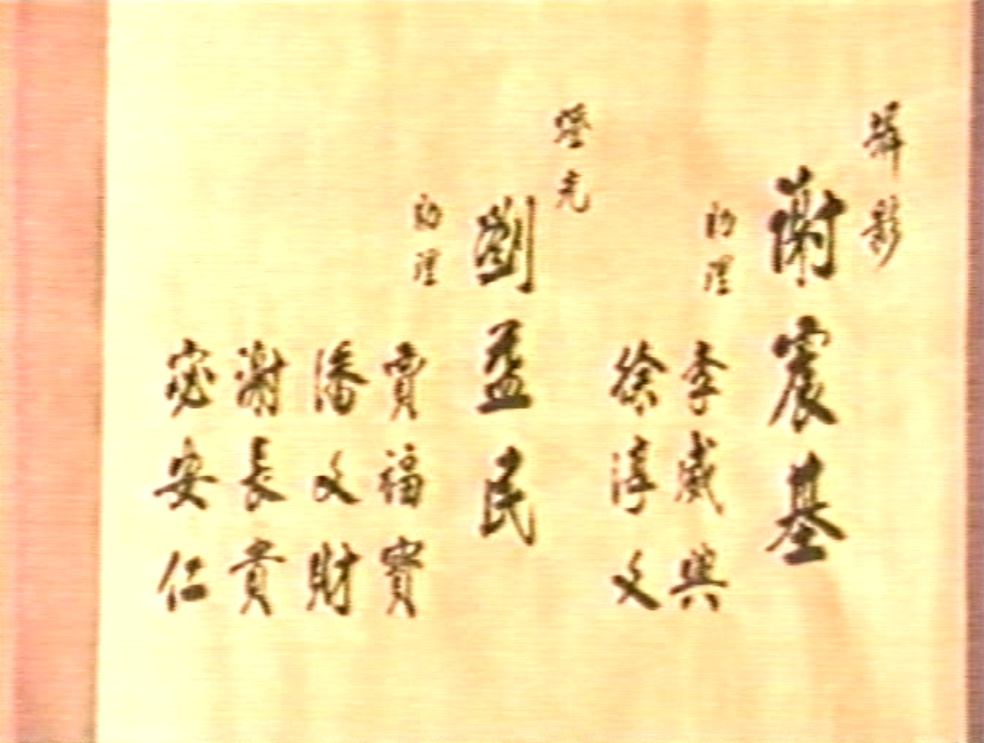 攝影
謝震基
助理
李威興
徐淳文
燈光
劉益民
助理
賈福寶
潘文財
謝長貴
安仁